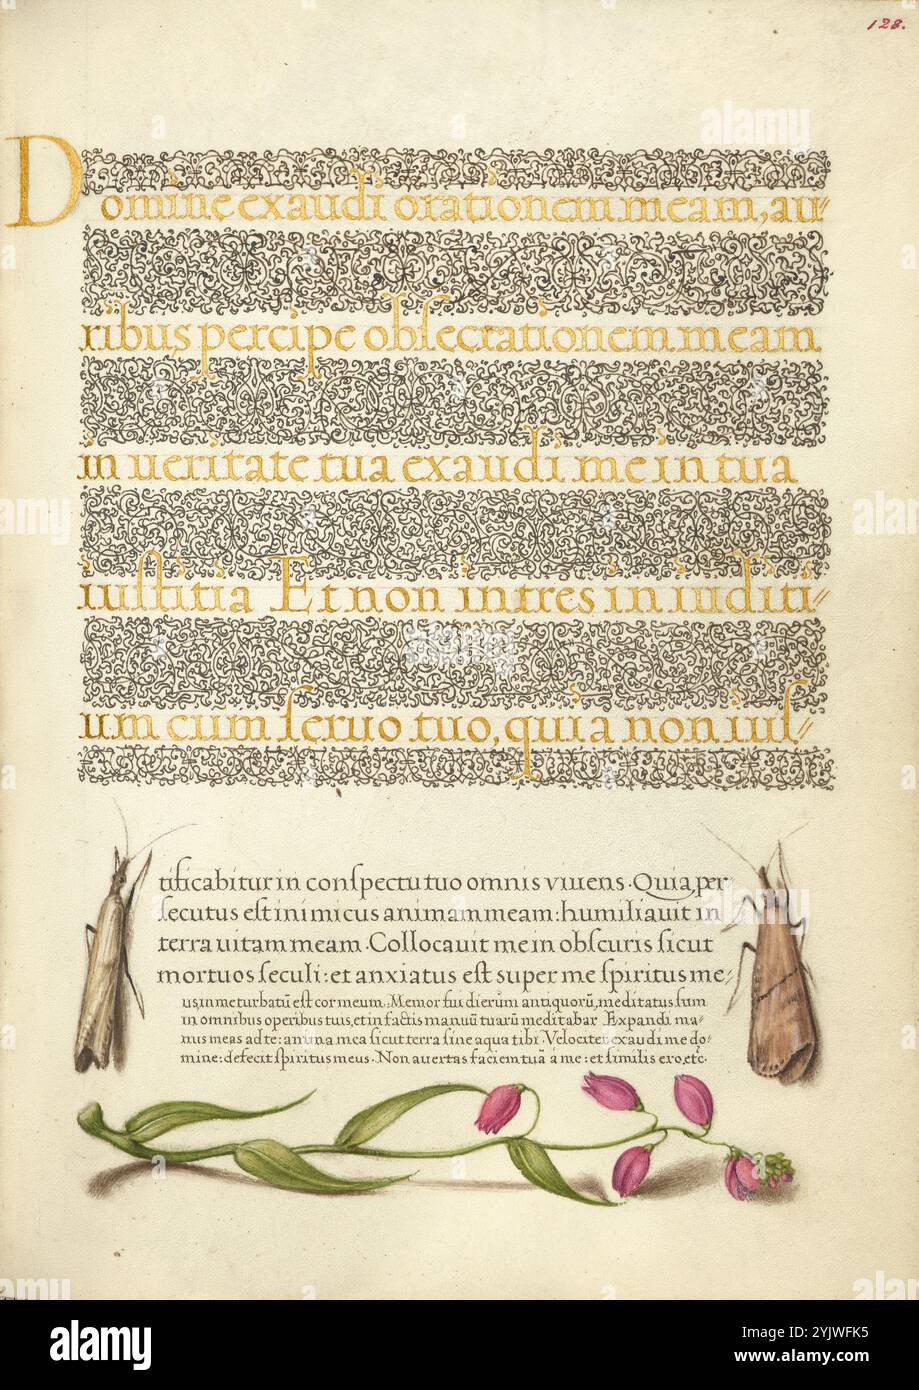 128.
Domine exaudi orationem meam, au//
ribus percipe obsecrationem meam
in ueritate tua exaudi me in tua
iustitia Et non intres in iuditi//
um cum seruo tuo, quia non ius//
tificabitur in conspectu tuo omnis viuens. Quia per//
secutus est inimicus animam meam: humiliauit in
terra uitam meam. Collocauit me in obscuris sicut
mortuos seculi: et anxiatus est super me spiritus me//
us, in me turbatū est cor meum. Memor fui dierum antiquorū, meditatus sum
in omnibus operibus tuis, et in factis manuū tuarū meditabar. Expandi ma//
nus meas ad te: anima mea sicut terra sine aqua tibi. Velociter exaudi me do//
mine: defecit spiritus meus. Non auertas faciem tuā a me: et similis ero, etc.
alamy
alamy
Image ID: 2YJWFK5
www.alamy.com